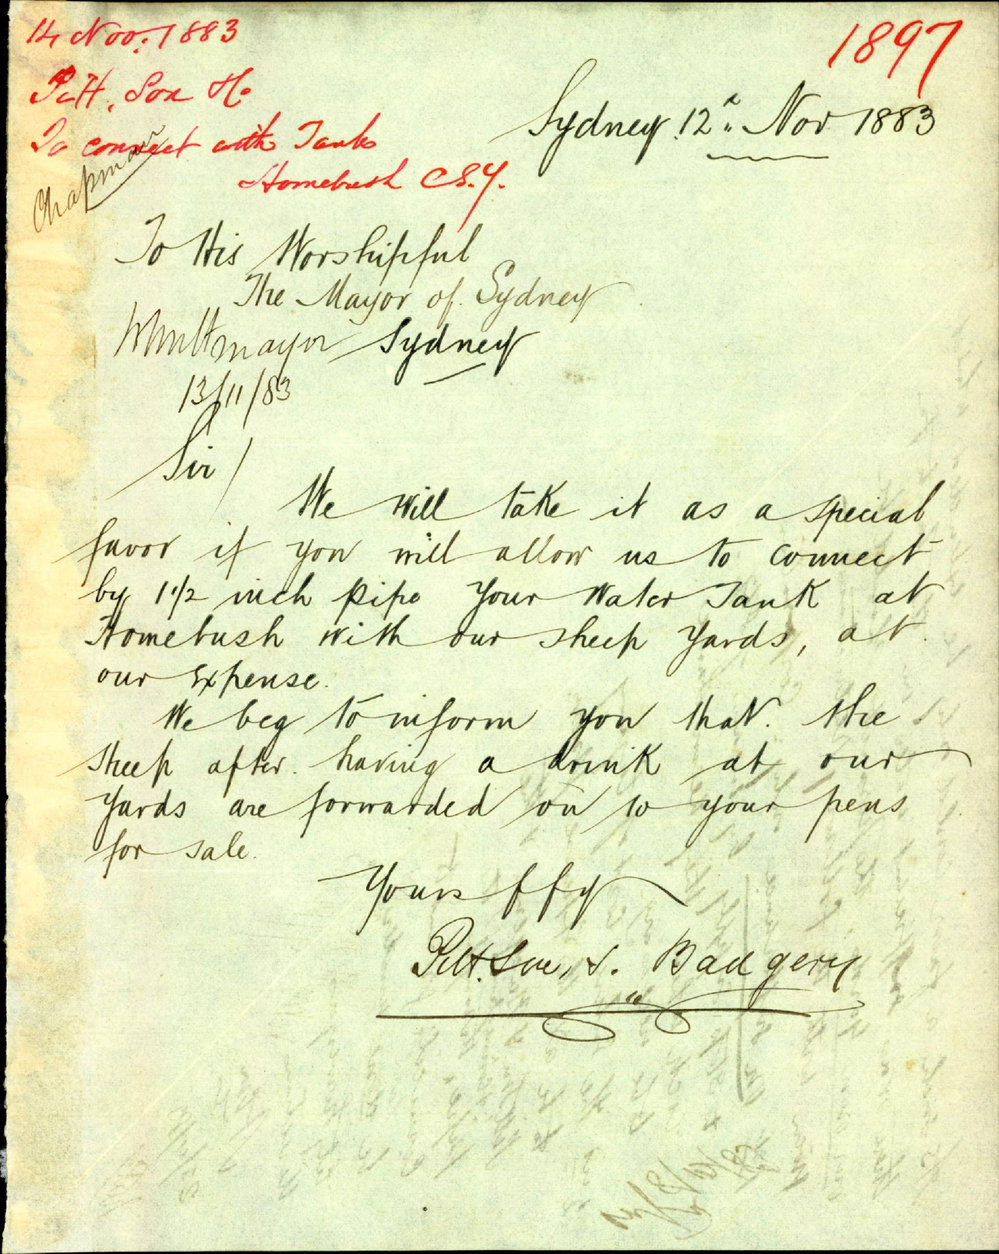 14 Nov. 1883
1897
Pitt, Son & Co
To connect with Tank
Homebush C.S.Y.
Chapman
Sydney 12th Nov 1883
To His Worshipful
The Mayor of Sydney
Sydney
mayor
13/11/83
Sir/
We will take it as a special
favor if you will allow us to connect
by 1 1/2 inch pipe your Water Tank at
Homebush with our sheep yards, at
our expense.
We beg to inform you that the
sheep after having a drink at our
yards are forwarded on to your pens
for sale.
Yours ffy
Pitt, Son, & Badgery